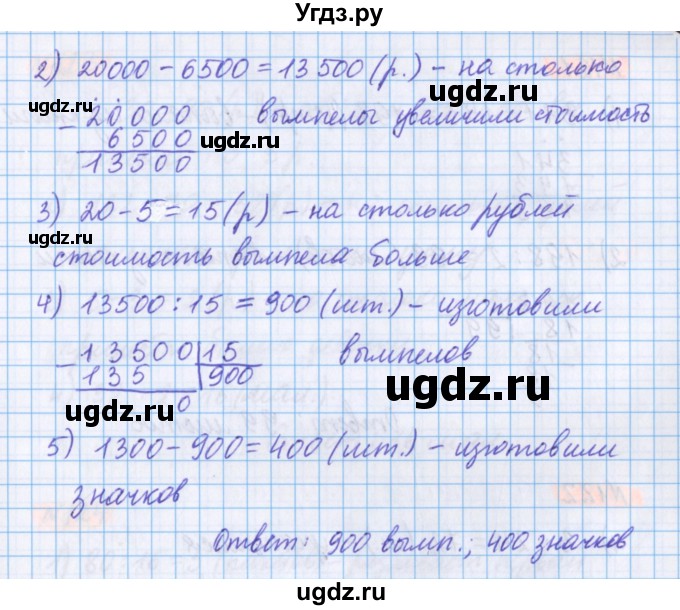 Угдз.ру
2) 20000 - 6500 = 13500 (р.) - на столько
вымпелы увеличили стоимость
- 20000
6500
13500
3) 20 - 5 = 15 (р) - на столько рублей
стоимость вымпела больше
4) 13500 : 15 = 900 (шт.) - изготовили
вымпелов
- 13500 | 15
135 | 900
0
5) 1300 - 900 = 400 (шт.) - изготовили
значков
Ответ: 900 вымп.; 400 значков
gdz.ru
gdz.ru
gdz.ru
gdz.ru
gdz.ru
gdz.ru
gdz.ru
gdz.ru
Угдз.ру